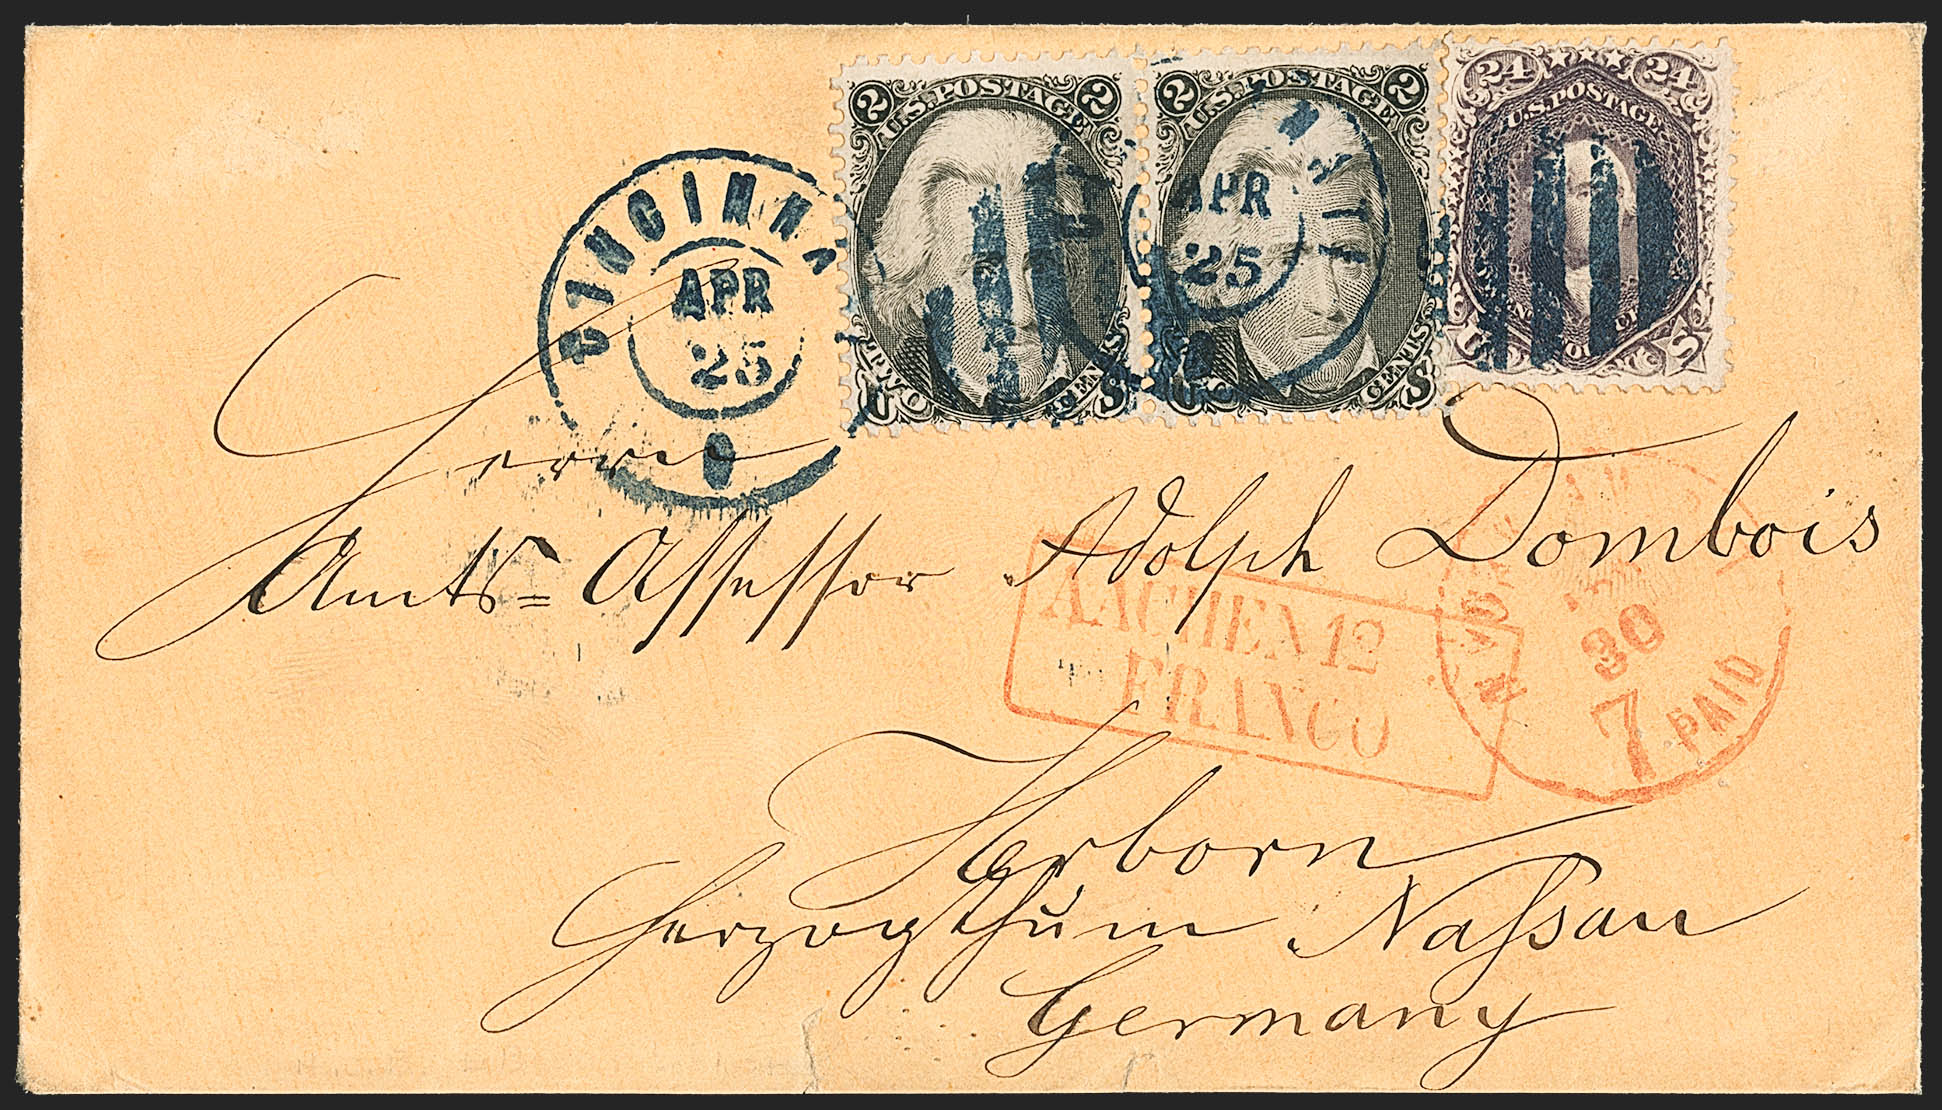 2 U.S. POSTAGE 2
TWO CENTS
U S
2 U.S. POSTAGE 2
CENTS
U S
24 24
U.S. POSTAGE
U S
CINCINNA
APR
25
O
APR
25
Herrn
Amts=Assessor Adolph Dombois
AACHEN 12
FRANCO
30
7 PAID
Herborn
Herzogthum Nassau
Germany